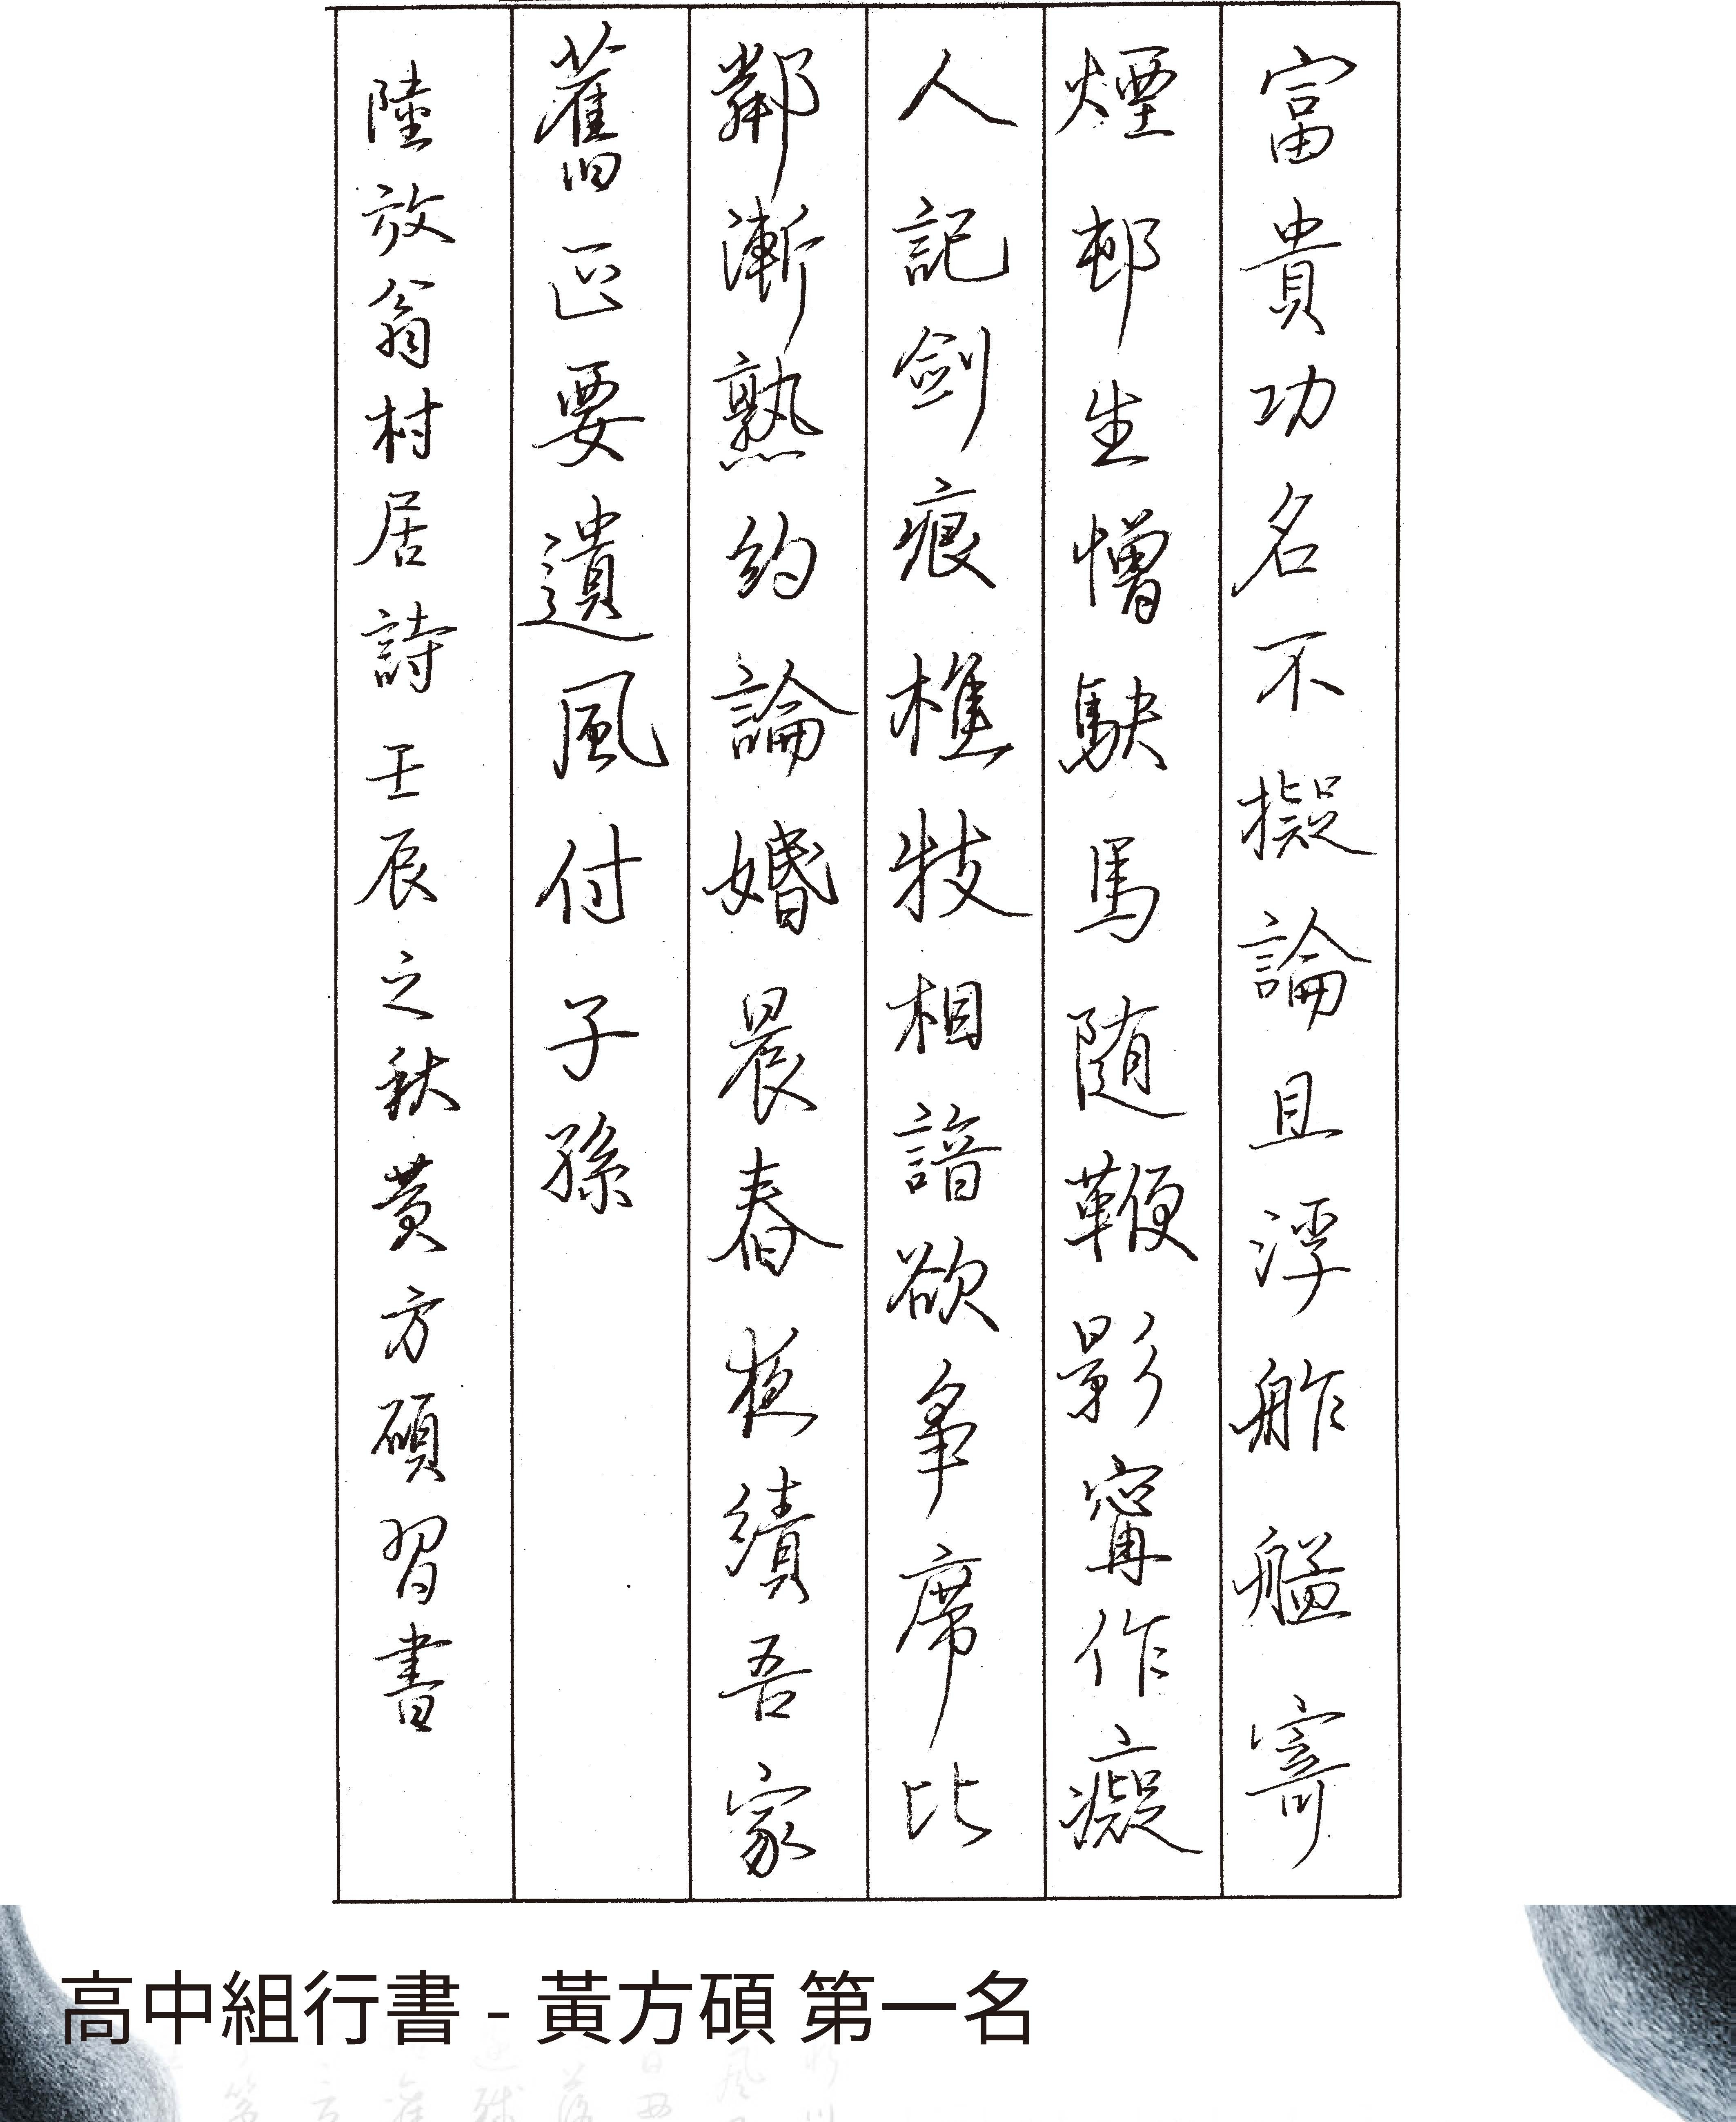 富貴功名不擬論且浮舴艋寄
煙邨生憎駃馬随鞭影寗作癡
人記劍痕樵牧相諳欲爭席比
鄰漸熟約論婚晨舂夜績吾家
舊正要遺風付子孫
陸放翁村居詩壬辰之秋黃方碩習書
高中組行書 - 黃方碩 第一名